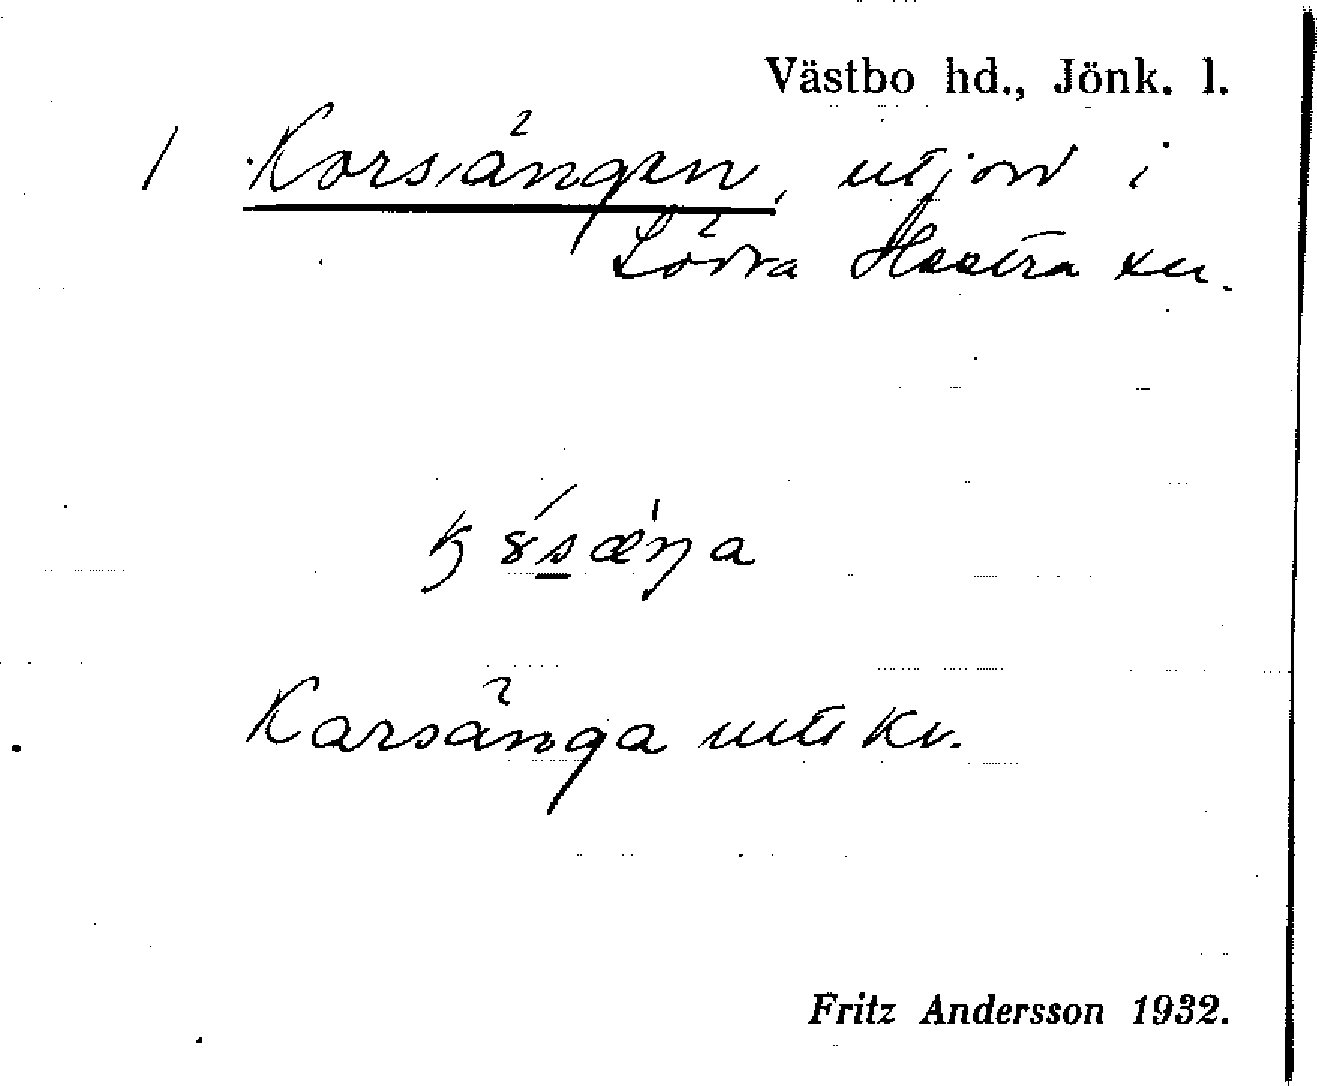 Västbo hd., Jönk. l.
1 Korsängen, utjord i
Södra Hestra sn.
Karsänga uti Kv.
Fritz Andersson 1932.